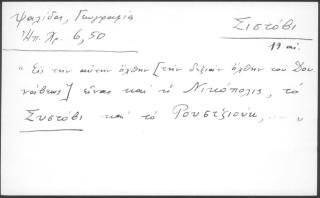 Ψαλίδας, Γεωγραφία
Ηπ. Χρ. 6, 50
Σιστόβι
19 αι.
"Εις την αυτήν όχθην [την δεξιάν όχθην του Δου
νάβεως] είναι και η Νικόπολις, το
Συστόβι και το Ρουστζιούκ, .... "